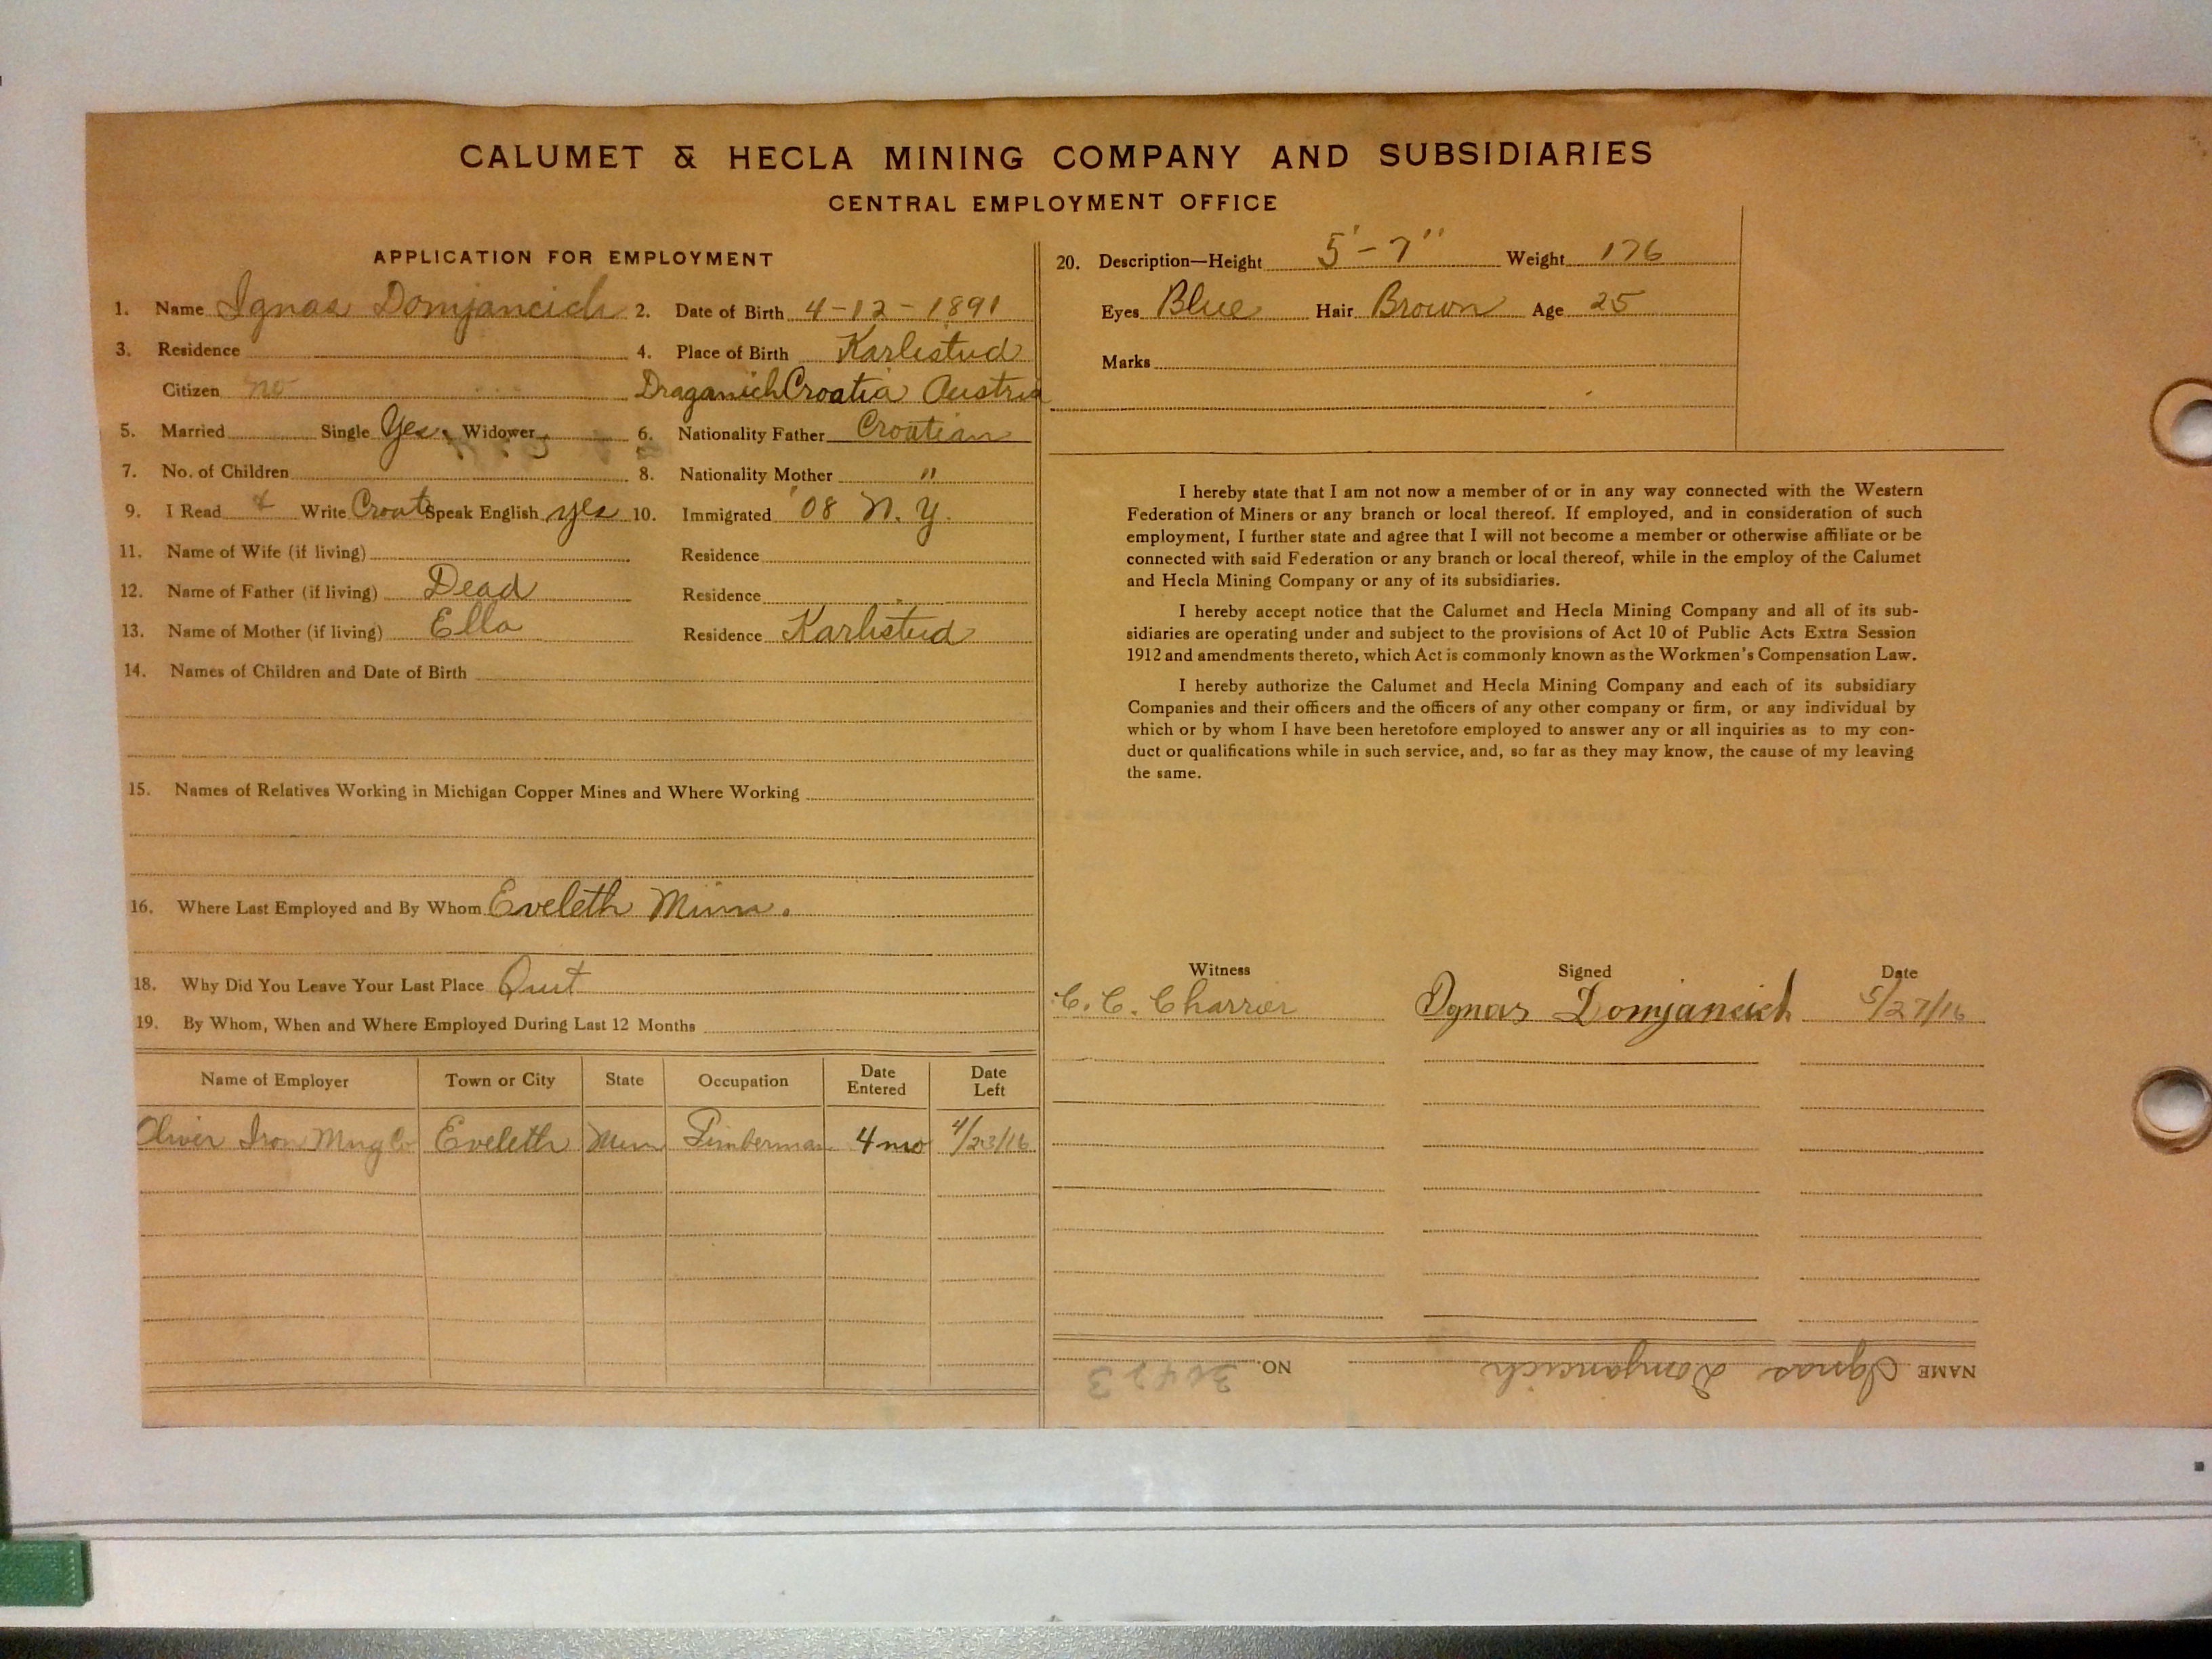 CALUMET & HECLA MINING COMPANY AND SUBSIDIARIES
CENTRAL EMPLOYMENT OFFICE
APPLICATION FOR EMPLOYMENT
1. Name Ignas Domjancich 2. Date of Birth 4-12-1891
3. Residence 4. Place of Birth Karlistud
Citizen no Draganich Croatia Austria
5. Married Single Yes. Widower 6. Nationality Father Croatian
7. No. of Children 8. Nationality Mother "
9. I Read & Write Croat Speak English yes 10. Immigrated '08 N. Y.
11. Name of Wife (if living) Residence
12. Name of Father (if living) Dead Residence
13. Name of Mother (if living) Ella Residence Karlistud
14. Names of Children and Date of Birth
15. Names of Relatives Working in Michigan Copper Mines and Where Working
16. Where Last Employed and By Whom Eveleth Minn.
18. Why Did You Leave Your Last Place Quit
19. By Whom, When and Where Employed During Last 12 Months
Name of Employer Town or City State Occupation Date Entered Date Left
Oliver Iron Mng Co Eveleth Minn Timberman 4 mo 4/23/16
20. Description—Height 5'-7" Weight 176
Eyes Blue Hair Brown Age 25
Marks
I hereby state that I am not now a member of or in any way connected with the Western
Federation of Miners or any branch or local thereof. If employed, and in consideration of such
employment, I further state and agree that I will not become a member or otherwise affiliate or be
connected with said Federation or any branch or local thereof, while in the employ of the Calumet
and Hecla Mining Company or any of its subsidiaries.
I hereby accept notice that the Calumet and Hecla Mining Company and all of its sub-
sidiaries are operating under and subject to the provisions of Act 10 of Public Acts Extra Session
1912 and amendments thereto, which Act is commonly known as the Workmen's Compensation Law.
I hereby authorize the Calumet and Hecla Mining Company and each of its subsidiary
Companies and their officers and the officers of any other company or firm, or any individual by
which or by whom I have been heretofore employed to answer any or all inquiries as to my con-
duct or qualifications while in such service, and, so far as they may know, the cause of my leaving
the same.
Witness Signed Date
C. C. Charrier Ignas Domjancich 5/27/16
NAME Ignas Domjancich NO.